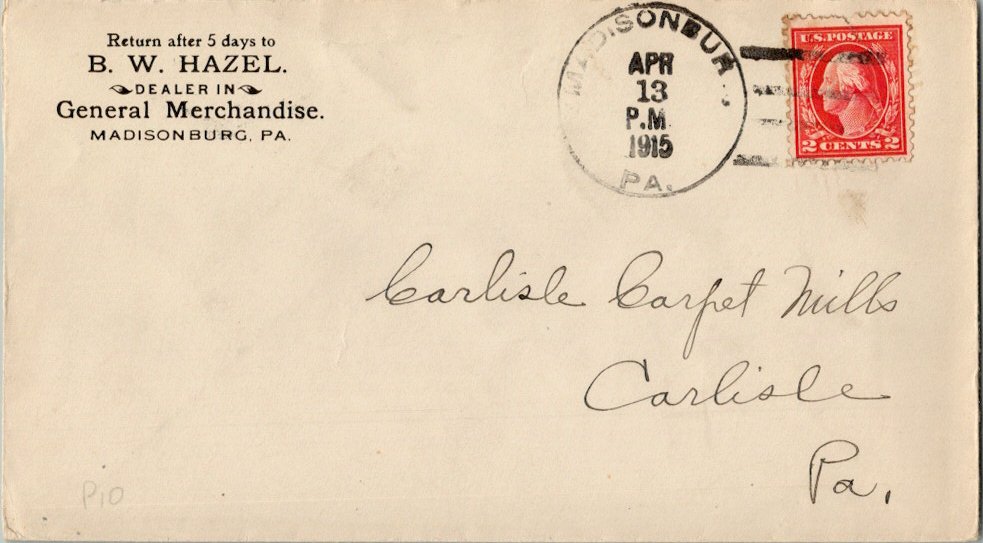 Return after 5 days to
B. W. HAZEL.
DEALER IN
General Merchandise.
MADISONBURG, PA.
MADISONBUR
APR
13
P.M.
1915
PA.
U.S. POSTAGE
2 CENTS 2
Carlisle Carpet Mills
Carlisle
Pa.
P10